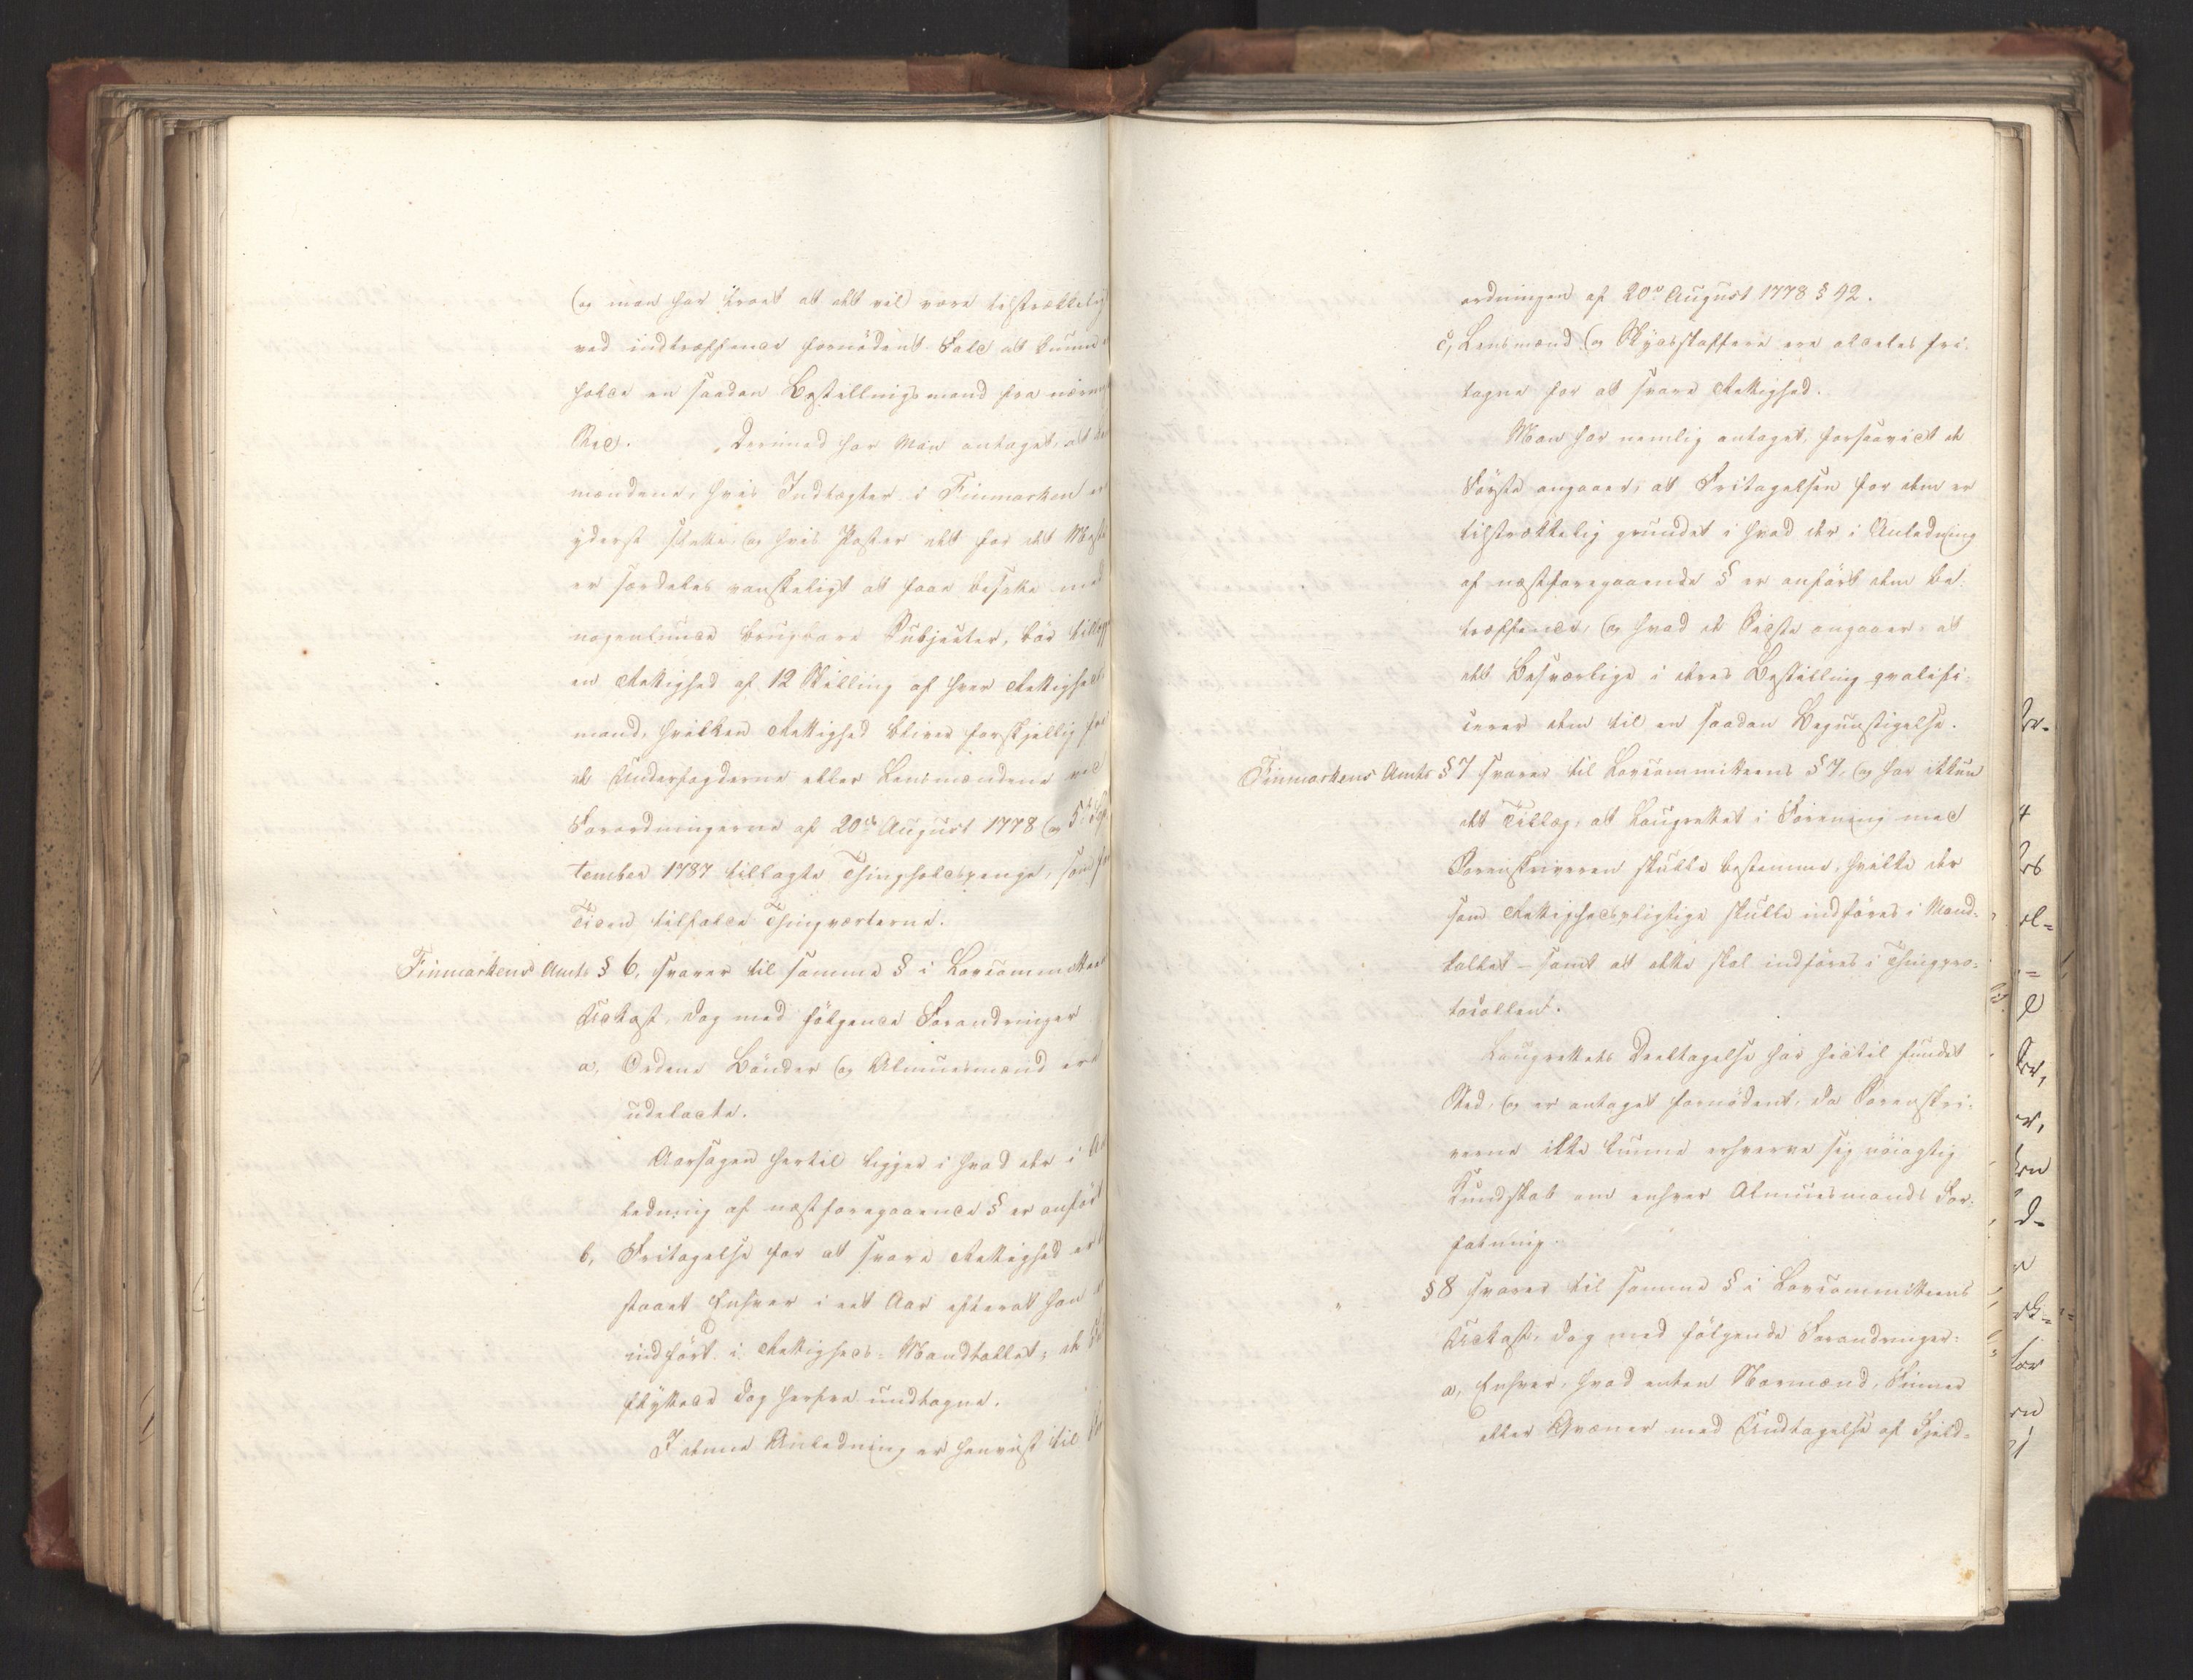 og man har troet at det vil være tilstrækkelig
ved indtræffende fornødent Fald at kunne
holde en saadan Bestillingsmand fra nærmeste
Sted. Derimod har Man antaget, at
mændene, hvis Indtægter i Finmarken er
yderst slette, og hvis Poster det for det Meste
er særdeles vanskeligt at faae besatte med
nogenlunde brugbare Subjecter, bør tillægges
en Rettighed af 12 Skilling af hver Rettigheds-
mand, hvilken Rettighed bliver forskjellig fra
de Underfogderne eller Lensmændene ved
Forordningerne af 20de August 1778 og 5te Sep-
tember 1787 tillagte Thingholdspenge, som for
Tiden tilfalde Thingværterne.
Finmarkens Amts § 6, svarer til samme § i Lovcommitteens
Udkast, dog med følgende Forandringer
a, Ordene Bønder og Almuesmænd ere
udeladte.
Aarsagen hertil ligger i hvad der i An-
ledning af næstforegaaende § er anført
b, Fritagelse for at svare Rettighed er
staaet Enhver i eet Aar efterat han er
indført i Rettigheds-Mandtallet; de
flyttede dog herfra undtagne.
I denne Anledning er henviist til
ordningen af 20de August 1778 § 42.
c, Lensmænd og Skydsskaffere ere aldeles fri-
tagne for at svare Rettighed.
Man har nemlig antaget, forsaavidt de
Første angaaer, at Fritagelsen for dem er
tilstrækkelig grundet i hvad der i Anledning
af næstforegaaende § er anført dem be-
træffende, og hvad de Sidste angaaer, at
det Besværlige i deres Bestilling qvalifi-
cerer dem til en saadan Begunstigelse.
Finmarkens Amts § 7 svarer til Lovcommitteens § 7, og har ikkun
det Tillæg, at Laugrettet i Forening med
Sorenskriveren skulle bestemme, hvilke der
som Rettighedspligtige skulle indføres i Mand-
tallet – samt at dette skal indføres i Thingpro-
tocollen.
Laugrettets Deeltagelse har hidtil fundet
Sted, og er antaget fornødent, da Sorenskri-
verne ikke kunne erhverve sig nøiagtig
Kundskab om enhver Almuesmands For-
fatning.
" § 8 svarer til samme § i Lovcommitteens
Udkast, dog med følgende Forandringer:
a, Enhver, hvad enten Normænd, Finner
eller Qvæner med Undtagelse af Fjeld-